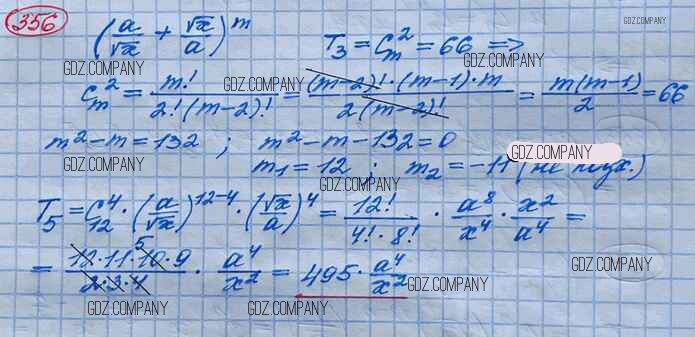 356
(a/√x + √x/a)^m    T₃ = C_m^2 = 66 =>
GDZ.COMPANY GDZ.COMPANY GDZ.COMPANY
C_m^2 = m!/(2!(m-2)!) = ((m-2)!·(m-1)·m)/(2(m-2)!) = m(m-1)/2 = 66
GDZ.COMPANY GDZ.COMPANY
m²-m=132 ; m²-m-132=0
GDZ.COMPANY GDZ.COMPANY
m₁=12 ; m₂=-11 (не подх.)
GDZ.COMPANY
T₅ = C_12^4 · (a/√x)^(12-4) · (√x/a)^4 = 12!/(4!·8!) · a⁸/x⁴ · x²/a⁴ =
= (12·11·10·9)/(2·3·4) · a⁴/x² = 495· a⁴/x²
5
GDZ.COMPANY GDZ.COMPANY
GDZ.COMPANY GDZ.COMPANY